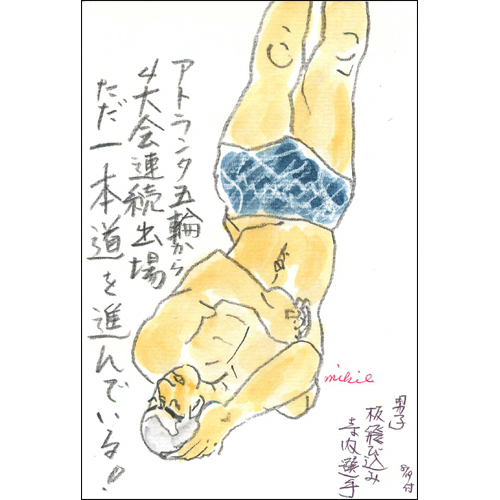 アトランタ五輪から
4大会連続出場
ただ一本道を進んでいる!
mikie
男子
板飛び込み
寺内選手
8/19付